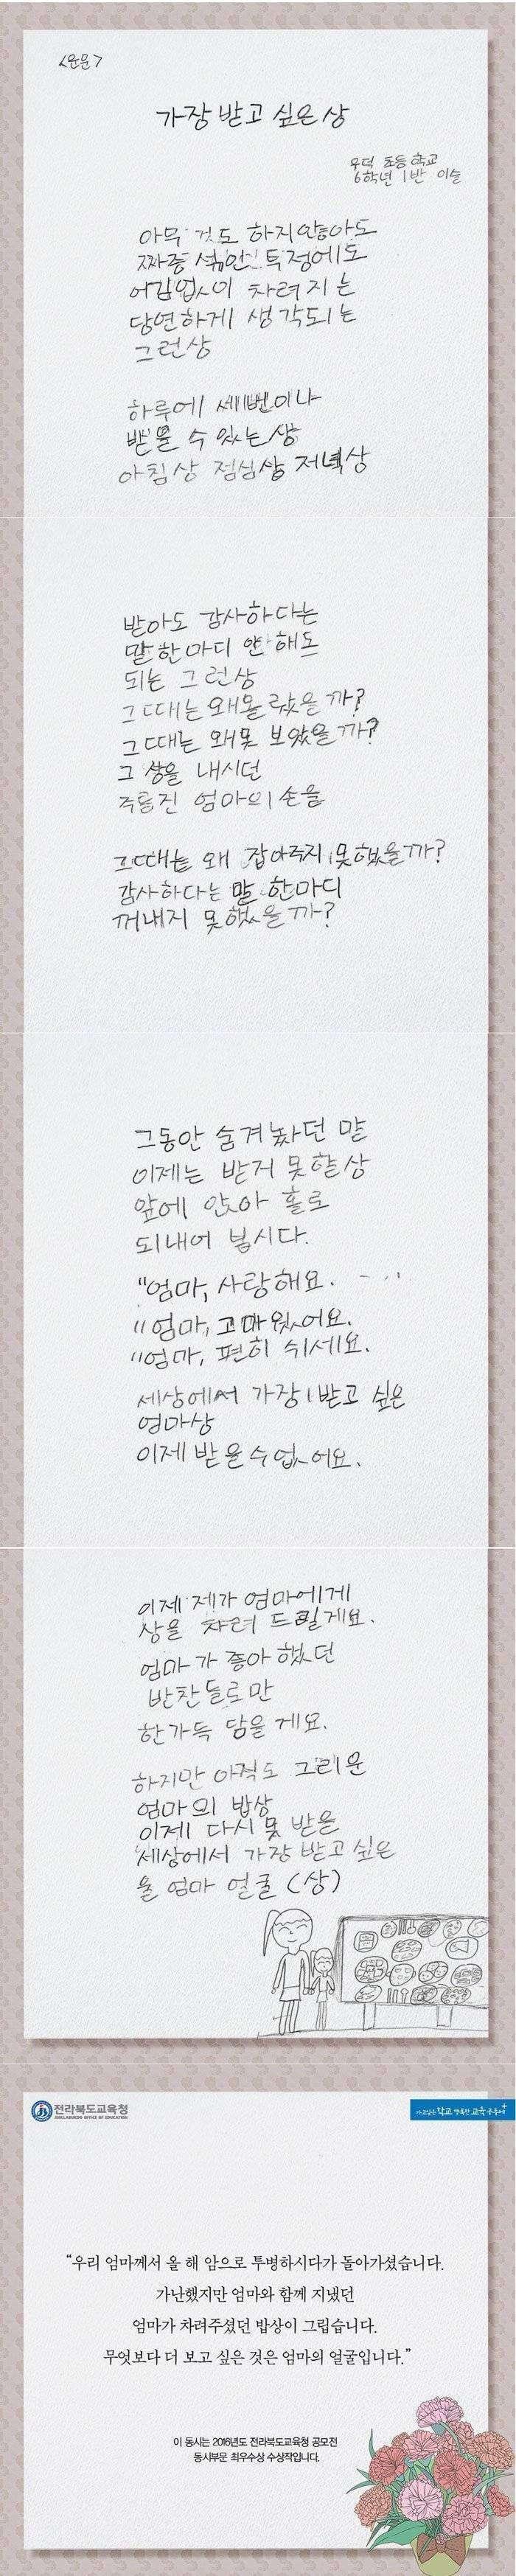 <운문>
가장 받고 싶은 상
우덕 초등학교
6학년 1반 이슬
아무 것도 하지 않아도
짜증 섞인 투정에도
어김없이 차려지는
당연하게 생각되는
그런상
하루에 세번이나
받을 수 있는 상
아침상 점심상 저녁상
받아도 감사하다는
말 한마디 안 해도
되는 그런상
그때는 왜 몰랐을까?
그때는 왜 못 보았을까?
그 상을 내시던
주름진 엄마의 손을
그때는 왜 잡아주지 못했을까?
감사하다는 말 한마디
꺼내지 못했을까?
그동안 숨겨놨던 말
이제는 받지 못할상
앞에 앉아 홀로
되내어 봅시다.
"엄마, 사랑해요.
"엄마, 고마웠어요.
"엄마, 편히 쉬세요.
세상에서 가장 받고 싶은
엄마상
이제 받을수 없어요.
이제 제가 엄마에게
상을 차려 드릴게요.
엄마가 좋아했던
반찬들로만
한가득 담을게요.
하지만 아직도 그리운
엄마의 밥상
이제 다시 못 받을
세상에서 가장 받고 싶은
울 엄마 얼굴 (상)
전라북도교육청
JEOLLABUKDO OFFICE OF EDUCATION
가고싶은 학교 행복한 교육공동체
“우리 엄마께서 올 해 암으로 투병하시다가 돌아가셨습니다.
가난했지만 엄마와 함께 지냈던
엄마가 차려주셨던 밥상이 그립습니다.
무엇보다 더 보고 싶은 것은 엄마의 얼굴입니다.”
이 동시는 2016년도 전라북도교육청 공모전
동시부문 최우수상 수상작입니다.